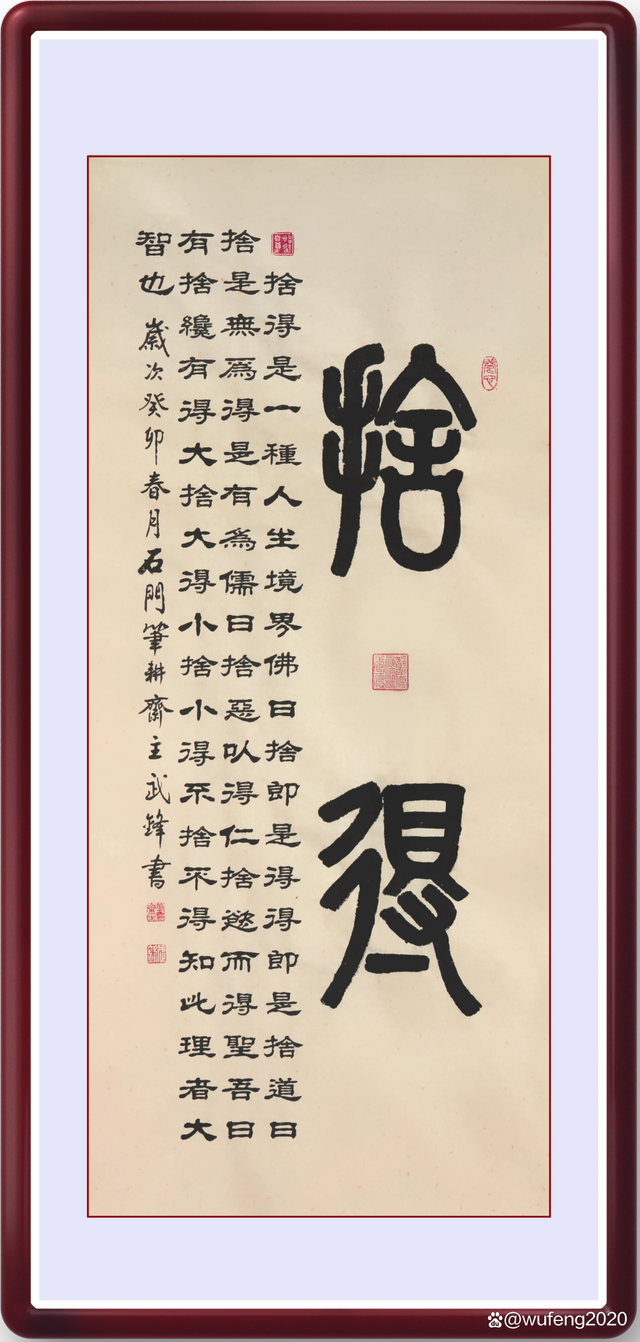 捨得
捨得是一種人生境界佛曰捨即是得得即是捨道曰
捨是無為得是有為儒曰捨惡以得仁捨慾而得聖吾曰
有捨纔有得大捨大得小捨小得不捨不得知此理者大
智也歲次癸卯春月石門筆耕齋主武鋒書
@wufeng2020